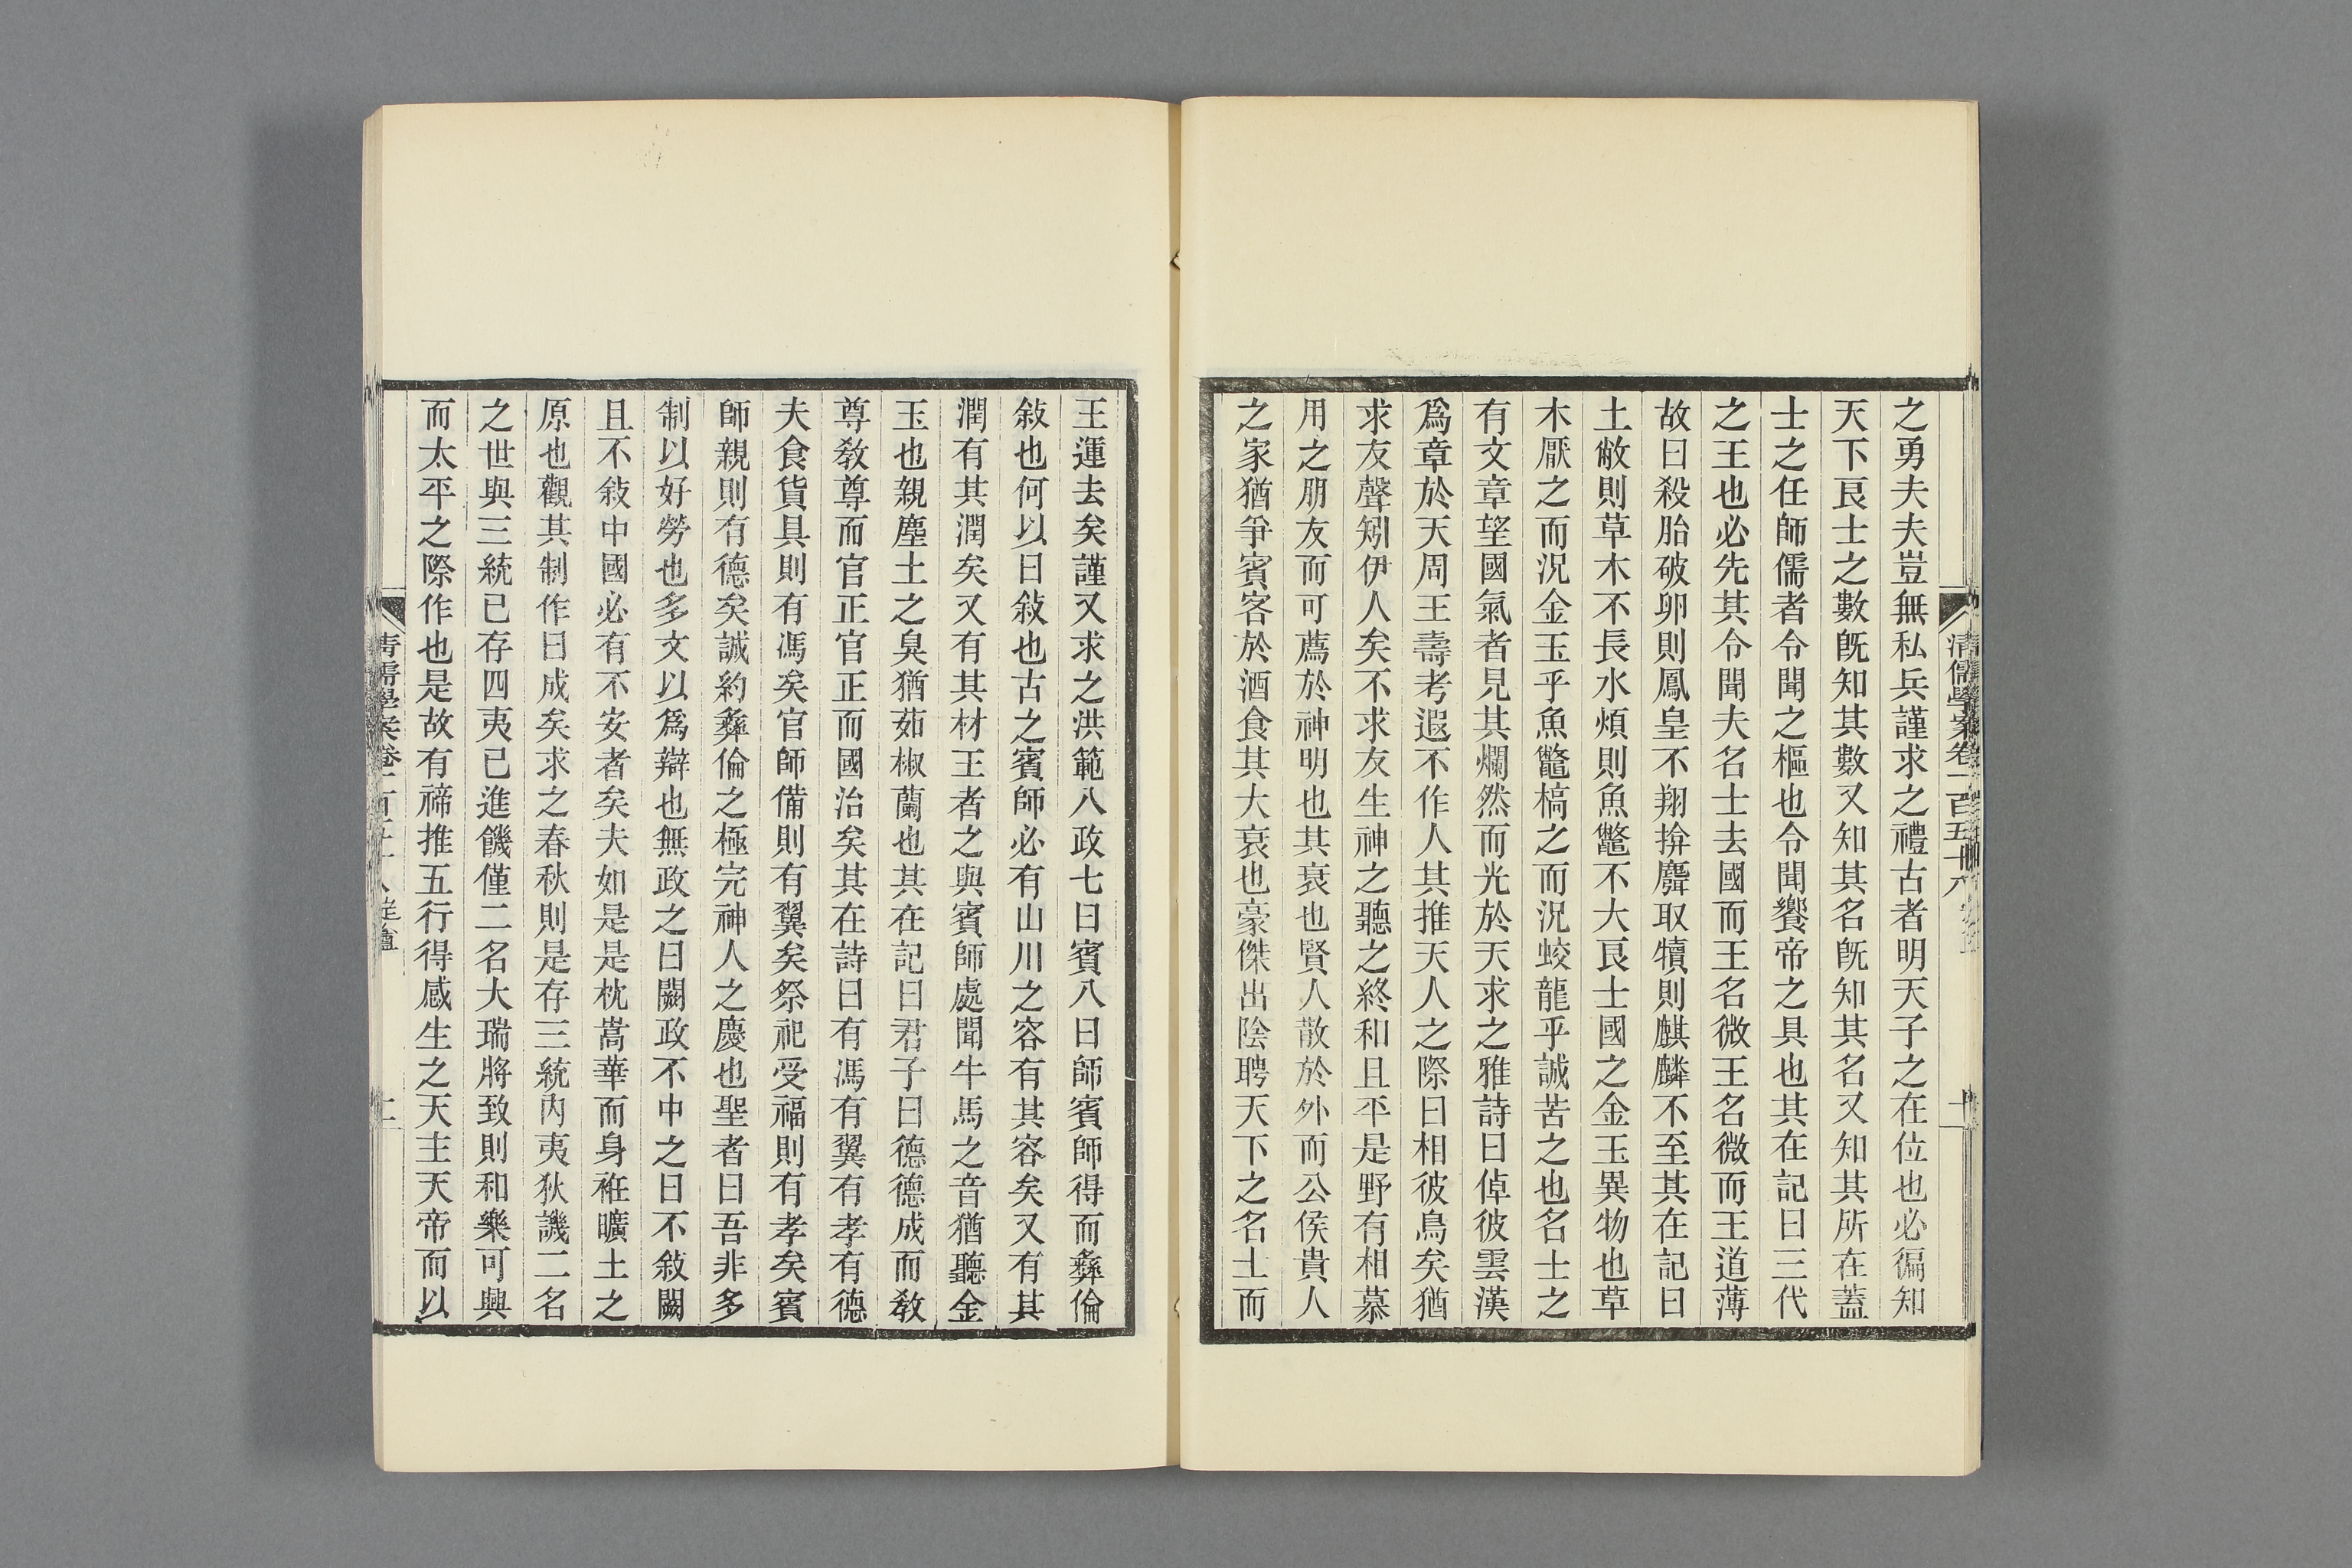 之勇夫夫豈無私兵謹求之禮古者明天子之在位也必徧知
天下良士之數旣知其數又知其名旣知其名又知其所在蓋
士之任師儒者令聞之樞也令聞饗帝之具也其在記曰三代
之王也必先其令聞夫名士去國而王名微王名微而王道薄
故曰殺胎破卵則鳳皇不翔揜麛取犢則麒麟不至其在記曰
土敝則草木不長水煩則魚鼈不大良士國之金玉異物也草
木厭之而況金玉乎魚鼈槁之而況蛟龍乎誠苦之也名士之
有文章望國氣者見其爛然而光於天求之雅詩曰倬彼雲漢
爲章於天周王壽考遐不作人其推天人之際曰相彼鳥矣猶
求友聲矧伊人矣不求友生神之聽之終和且平是野有相慕
用之朋友而可薦於神明也其衰也賢人散於外而公侯貴人
之家猶爭賓客於酒食其大衰也豪傑出陰聘天下之名士而
清儒學案卷一百五十八
王運去矣謹又求之洪範八政七曰賓八曰師賓師得而彝倫
敍也何以曰敍也古之賓師必有山川之容有其容矣又有其
潤有其潤矣又有其材王者之與賓師處聞牛馬之音猶聽金
玉也親塵土之臭猶茹椒蘭也其在記曰君子曰德德成而敎
尊敎尊而官正官正而國治矣其在詩曰有馮有翼有孝有德
夫食貨具則有馮矣官師備則有翼矣祭祀受福則有孝矣賓
師親則有德矣誠約彝倫之極完神人之慶也聖者曰吾非多
制以好勞也多文以爲辯也無政之曰闕政不中之曰不敍闕
且不敍中國必有不安者矣夫如是是枕嵩華而身袵曠土之
原也觀其制作曰成矣求之春秋則是存三統內夷狄譏二名
之世與三統已存四夷已進饑僅二名大瑞將致則和樂可興
而太平之際作也是故有禘推五行得感生之天主天帝而以